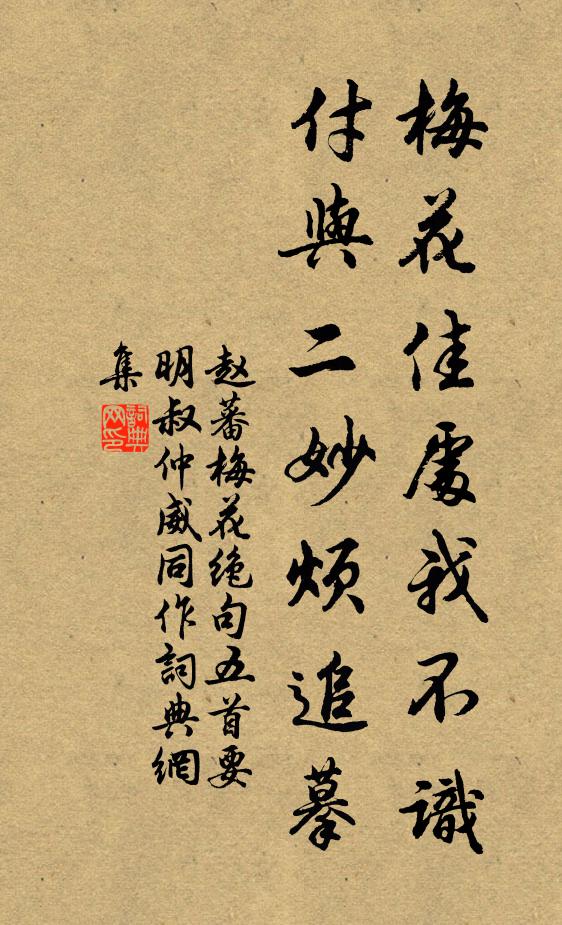 梅花佳處我不識
付與二妙煩追摹
赵蕃梅花绝句五首要
明叔仲威同作詞典網
集
詞典
网印